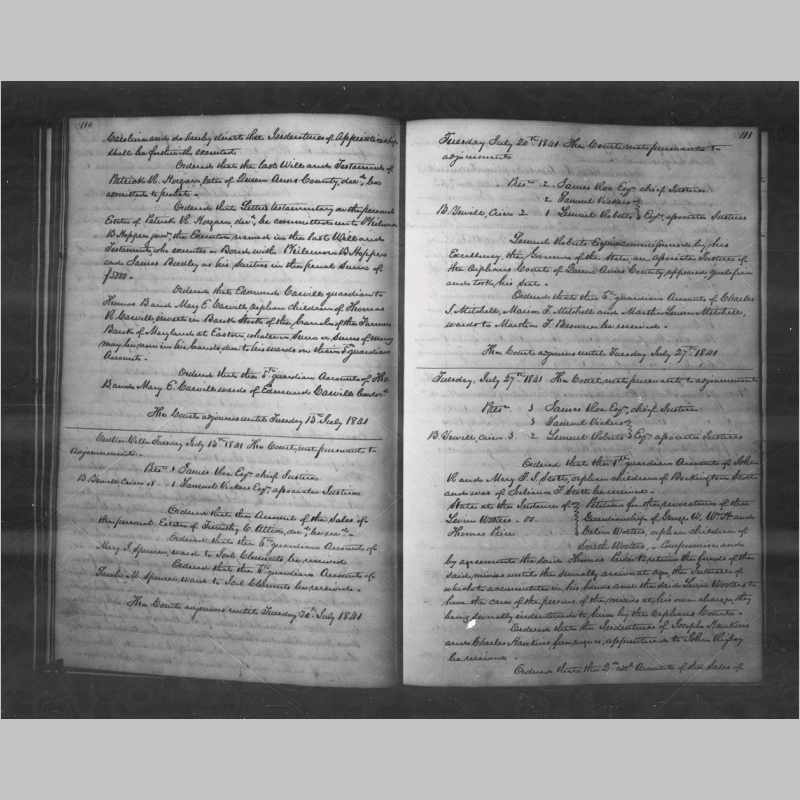 110
Caroline and do hereby direct that Indentures of Apprenticeship
shall be forthwith executed.
Ordered that the last Will and Testament of
Patrick H. Horgan, late of Queen Anns County, decd, be
admitted to probate.
Ordered that Letters testamentary on the personal
Estate of Patrick H. Horgan decd, be committed unto Philemon
B Hopper junr, the Executor named in the last Will and
Testament, who executes a Bond with Philemon B Hopper
and James Busley as his sureties in the penal sum of
$
Ordered that Edmund Carville guardian to
Thomas B and Mary E Carville orphan children of Thomas
R Carville, invest in Bank Stock of the Branch of the Farmers
Bank of Maryland at Easton, whatever sum or sums of money
may be, now in his hands, due to his wards on their 5th guardian
Account.
Ordered that the 5th guardian Account of Tho
B and Mary E Carville wards of Edmund Carville
The Court adjourns until Tuesday 13th July 1841
Centre Ville Tuesday July 13th 1841 The Court, met pursuant to
Adjournment.
Pst 1 James Roe Esqr chief Justice
B. Sewell, Crier 1 - 1 Samuel Vickers Esqr associate Justice
Ordered that the Account of the Sales of
the personal Estate of Timothy C. Alton, decd, be recd.
Ordered that the 6th guardian Account of
Mary J. Spencer, ward to Joel Clements be received
Ordered that the 6th guardian Account of
M Spencer ward to Joel Clements be received.
The Court adjourns until Tuesday 20th July 1841
111
Tuesday July 20th 1841 The Court met pursuant to
adjournment
Pst 2 James Roe Esqr chief Justice
2 Samuel Vickers
B. Sewell, Crier 2 1 Lemuel Roberts } Esqr associate Justices
Lemuel Roberts Esquire commissioned by his
Excellency, the Governor of the State, an associate Justice of
the Orphans Court of Queen Anns County, appeared, qualified
and took his seat.
Ordered that the 5th guardian Account of Charles
S. Mitchell, Maria F. Mitchell and Martha Mitchell,
wards to Martha T Brown be received.
The Court adjourns until Tuesday July 27th 1841
Tuesday, July 27th 1841 The Court met pursuant to adjournment
Pst 3 James Roe Esqr chief Justice
3 Samuel Vickers
B. Sewell, Crier 3. 2 Lemuel Roberts } Esqr associate Justices
Ordered that the 1st guardian Account of John
R and Mary P. S. Stott, orphan children of Stott
and ward of Juliana T Stott be received.
State at the Instance of } Petition for the revocation of the
Levin Wotters - vs } Guardianship of George W. Wm H and
Thomas Price } Celia Wotters, orphan children of
Wotters, - Compromise and
by agreement the said Thomas Price to retain the funds of the
said minors until they severally arrive at age, the Interest of
which to accumulate in his hands and the said Levin Wotters to
have the care of the persons of the minors at his own charge, they
being severally indentured to him by the Orphans Court.
Ordered that the Indentures of Joseph Hawkins
and Charles Hawkins, free negroes, apprenticed to John
be received.
Ordered that the 2nd addl Account of the Sales of